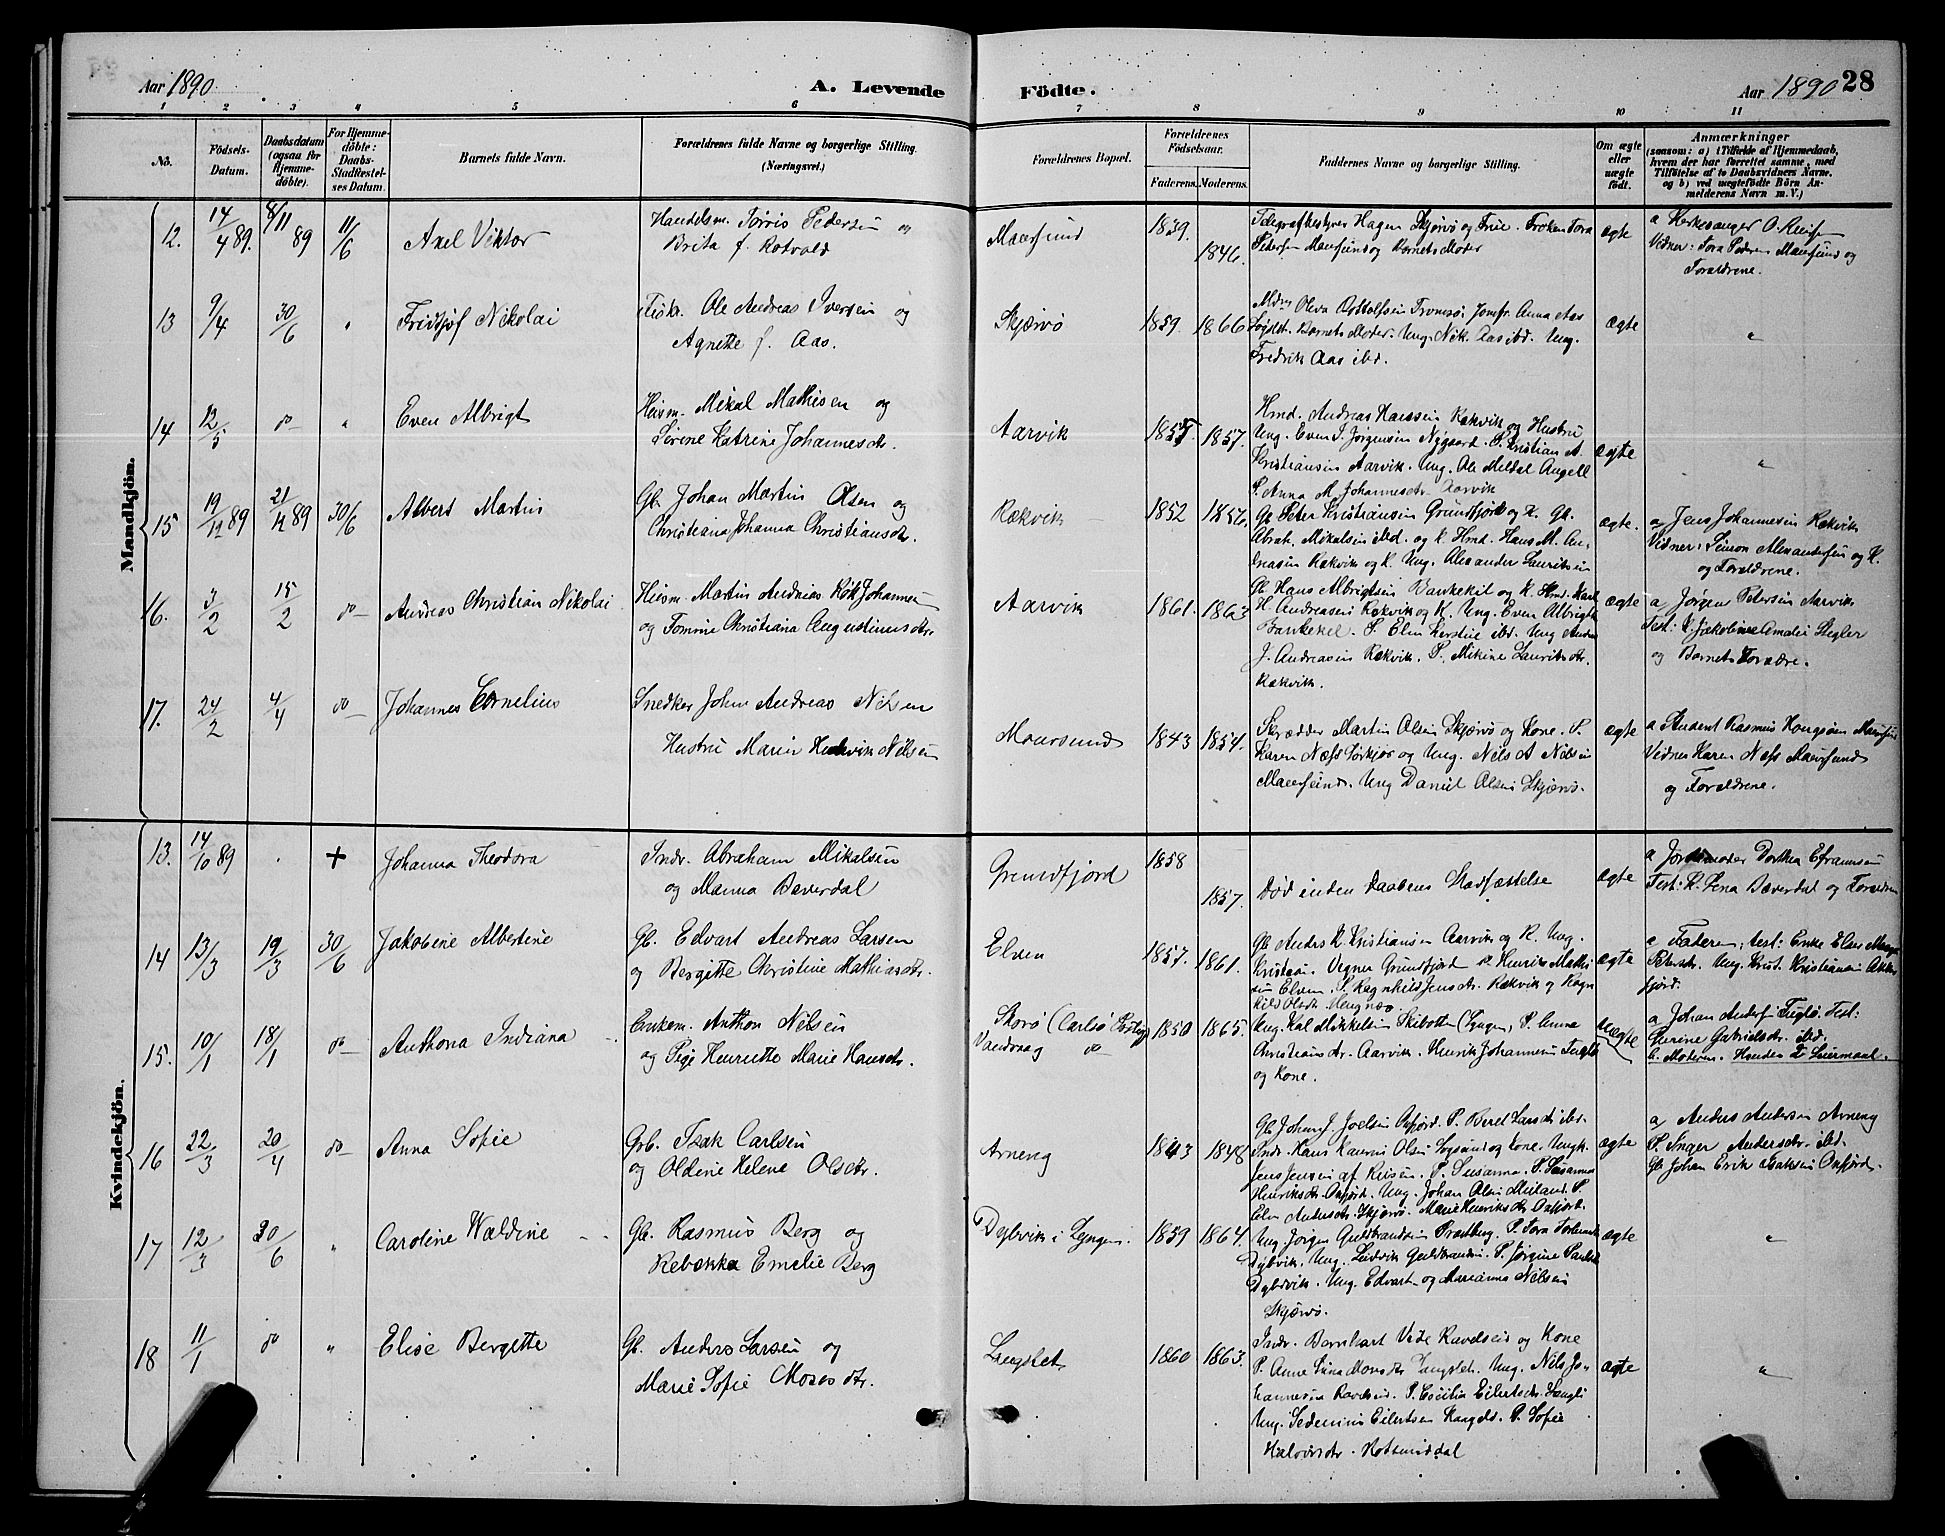 Aar 1890
A. Levende Födte.
Aar 1890 28
1 2 3 4 5 6 7 8 9 10 11
No.
Födsels-Datum.
Daabsdatum (ogsaa for Hjemme-döbte).
For Hjemme-döbte: Daabs-Stadfæstel-ses Datum.
Barnets fulde Navn.
Forældrenes fulde Navne og borgerlige Stilling.
(Næringsvei.)
Forældrenes Bopæl.
Forældrenes Födselsaar.
Faderens. Moderens.
Faddernes Navne og borgerlige Stilling.
Om ægte eller uægte födt.
Anmærkninger
(saasom: a) i Tilfælde af Hjemmedaab, hvem der har forrettet samme, med Tilföielse af to Daabsvidners Navne, og b) ved uægtefödte Börn An-melderens Navn m. V.)
Mandkjön.
12. 14/4 89. 8/11 89 11/6 Axel Viktor
Handelsm. Jörris Pedersen og
Brita f. Rotvold
Maursund 1839. 1846.
Telegrafbestyrer Hagen Skjervö og Frue. Fröken Tora
Petersen Maursund og Barnets Moder
ægte
a Kirkesanger O.
Vidner: Tora Pedersen Maursund og
Forældrene.
13 9/4 30/6 " Fridtjof Nikolai
Fisker. Ole Andreas Iversen og
Agnette f. Aas.
Skjærvö 1859. 1866
Oliva Tromsö. Jomfr. Anna Aas
Barnets Moder. Ung. Nik. Aas ibd. Ung.
Fredrik Aas ibd.
ægte "
14 12/5 do " Even Albrigt
Husm. Mikal Mathisen og
Serine Katrine Johannesdr.
Aarvik 1855. 1857.
Hmd. Andreas Hanssen Rækvik og Hustru
Ung. Even J. Jörgensen Nygaard. P. Kristian A.
Kristiansen Aarvik. Ung. Ole Meldal Angell
P. Anna M. Johannesdr. Aarvik
ægte "
15 19/12 89 21/12 89 30/6 Albert Martin
Gb. Johan Martin Olsen og
Christiana Johanna Christiansdr.
Rækvik 1852 1856.
Gb. Peter Kristiansen Grundfjord og K. Gb.
Abrah. Mikalsen ibd. og K. Hmd. Hans M. An-
dreasen Rækvik og K. Ung. Alexander Lauritsen
ægte.
a, Jens Johannesen Rækvik
Vidner: Simon Alexandersen og K.
og Forældrene.
16. 3/2 15/2 do Andreas Christian Nikolai
Husm. Martin Andreas Johannesen
og Tomine Christiana Augustinusdr.
Aarvik 1861. 1863
Gb. Hans Albrigtsen Bankekil og K. Hmd. Karl
H. Andreasen Rækvik og K. Ung. Even Albrigts
Bankekel. P. Elen Kerstine ibd. Ung Anders
J. Andreasen Rækvik. P. Mikine Lauritsdr.
Rækvik.
ægte
a, Jörgen Petersen Aarvik
Test: K. Jakobine Amalie Stegler
og Barnets Forældre.
17. 24/2 4/4 do Johannes Cornelius
Snedker John Andreas Nilsen
Hustru Maria Nilsen
Maursund 1843 1854.
Skrædder Martin Olsen Skjærvö og Kone. P.
Karen Næss og Ung. Nils A Nilsen
Maursund. Ung Daniel Olsen Skjærvö.
ægte
a Student Rasmus Maursund
Vidner Karen Næss Maursund
og Forældrene.
Kvindekjön.
13. 14/10 89 . + Johanna Theodora
Indr. Abraham Mikalsen
og Manna Bæverdal
Grundfjord 1858 1857.
Död inden Daabens Stadfæstelse
ægte
a Jordmoder Dorthea Efraimsen
Test: K. Lena Bæverdal og Forældrene
14 13/3 19/3 30/6 Jakobine Albertine
Gb. Edvart Andreas Larsen
og Bergitte Christine Mathiasdr.
Elven 1857. 1861.
Gb Anders K. Kristiansen Aarvik og K. Ung.
Kristian Vegner Grundfjord Henrik Mathi
sen Elven. P. Ragnhild Jensdr. Rækvik og Ragn
hild Olsdr.
ægte
a Faderen, test: Enke Elen
Petersdr. Ung. Krist. Kristiansen
fjord.
15. 10/1 18/1 do Anthona Indiana
Enkem. Anthon Nilsen
og Pige Henriette Marie Hansdr.
Skorö (Carlsö
Vandvaag do
1850 1865.
Ung. Kal Mikkelsen Skibotten Lyngen, P. Anne
Christiansdr. Aarvik. Henrik Johannesen Fuglö
og Kone.
Uægte
a Johan Anders Fuglö. Test:
Gurine Gabrielsdr. ibd.
b. Moderen. Hendes 2 Leiermaal.
16 22/3 20/4 do Anna Sofie
Grb. Isak Carlsen
og Oldine Helene Olsdr.
Arneng 1843 1848
Gb Johan J. Joelsen Oxfjord. P. Berel Larsdr ibd.
Indr. Hans Olsen og Kone. Ungk.
Jens Jensen af Reisen. P. Susanna. P. Susanna
Henriksdr. Oxfjord. Ung. Johan Olsen Meiland. P.
Elen Andersdr. Skjærvö. Marie Henriksdr. Oxfjord.
ægte
a, Anders Andersen Arneng
P. Inger Andersdr. ibd.
Gb Johan Erik Isaksen Oxfjord.
17 12/3 30/6 " Caroline Waldine
Gb. Rasmus Berg og
Rebekka Emelie Berg
Dybvik i Lyngen. 1859 1864.
Ung. Jörgen Guldbrandsen P. Tora
Dybvik. Ung. Ludvik Guldbrandsen. P. Jörgine
Dybvik. Ung. Edvart og Marianna Nilsen
Skjærvö.
ægte "
18 11/1 do " Elise Bergette
Gb. Anders Larsen og
Marie Sofie Mosesdr.
Langslet 1860 1863.
Indr. Bernhart Vide Ravelseid og Kone
P. Anne Lina Monsdr Langslet. Ung. Nils Jo-
hannesen Ravelseid. P. Cecilia Eilertsdr.
Ung. Eilertsen P. Sofie
Halvorsdr. Rotsunddal
ægte "